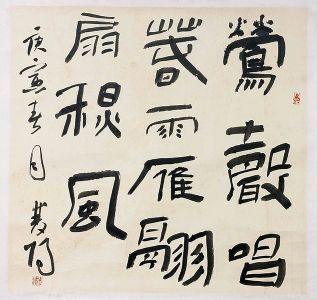 鶯聲唱
春雨雁翮
扇穆風
庚寅春月